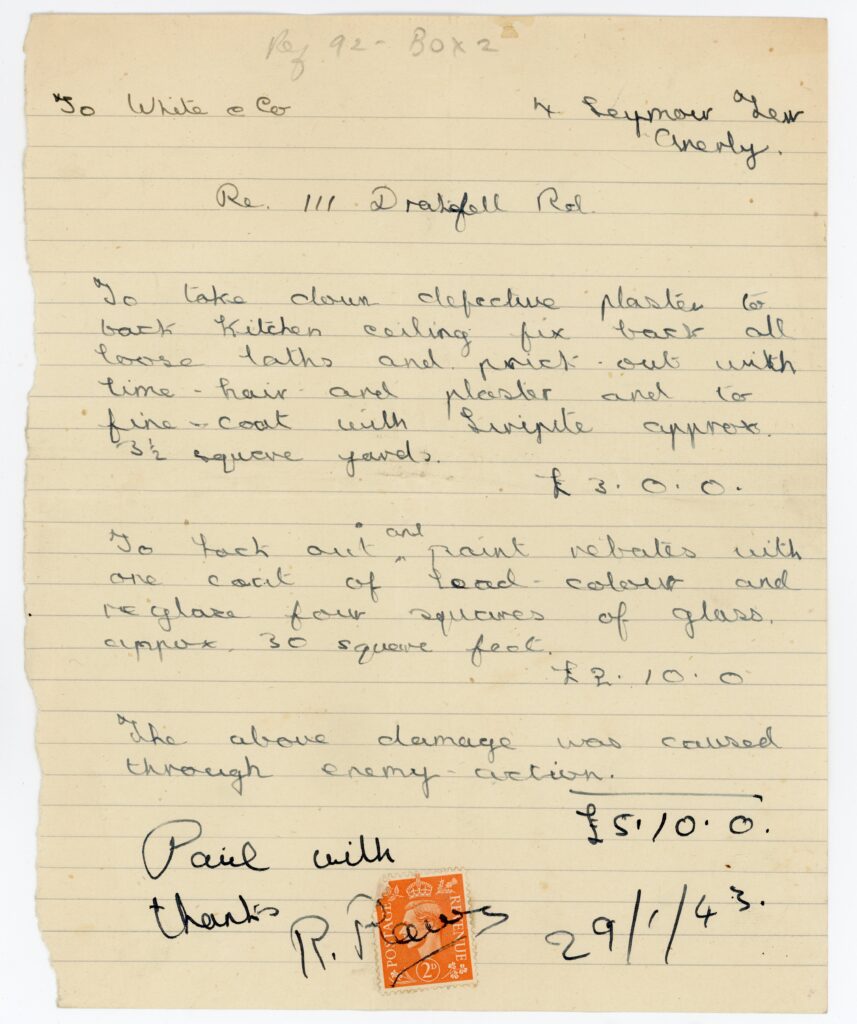 Ref 92 - Box 2
To White & Co
4 Seymour Terr
Anerly.
Re. 111 Dratfell Rd.
To take down defective plaster to
back kitchen ceiling fix back all
loose laths and prick-out with
lime-hair and plaster and to
fine-coat with Siripite approx.
3½ square yards.
£3.0.0.
To hack out and paint rebates with
one coat of lead-colour and
reglaze four squares of glass.
approx. 30 square feet.
£2.10.0
The above damage was caused
through enemy-action.
£5.10.0.
Paid with
thanks
R.
POSTAGE REVENUE
2D
29/1/43.